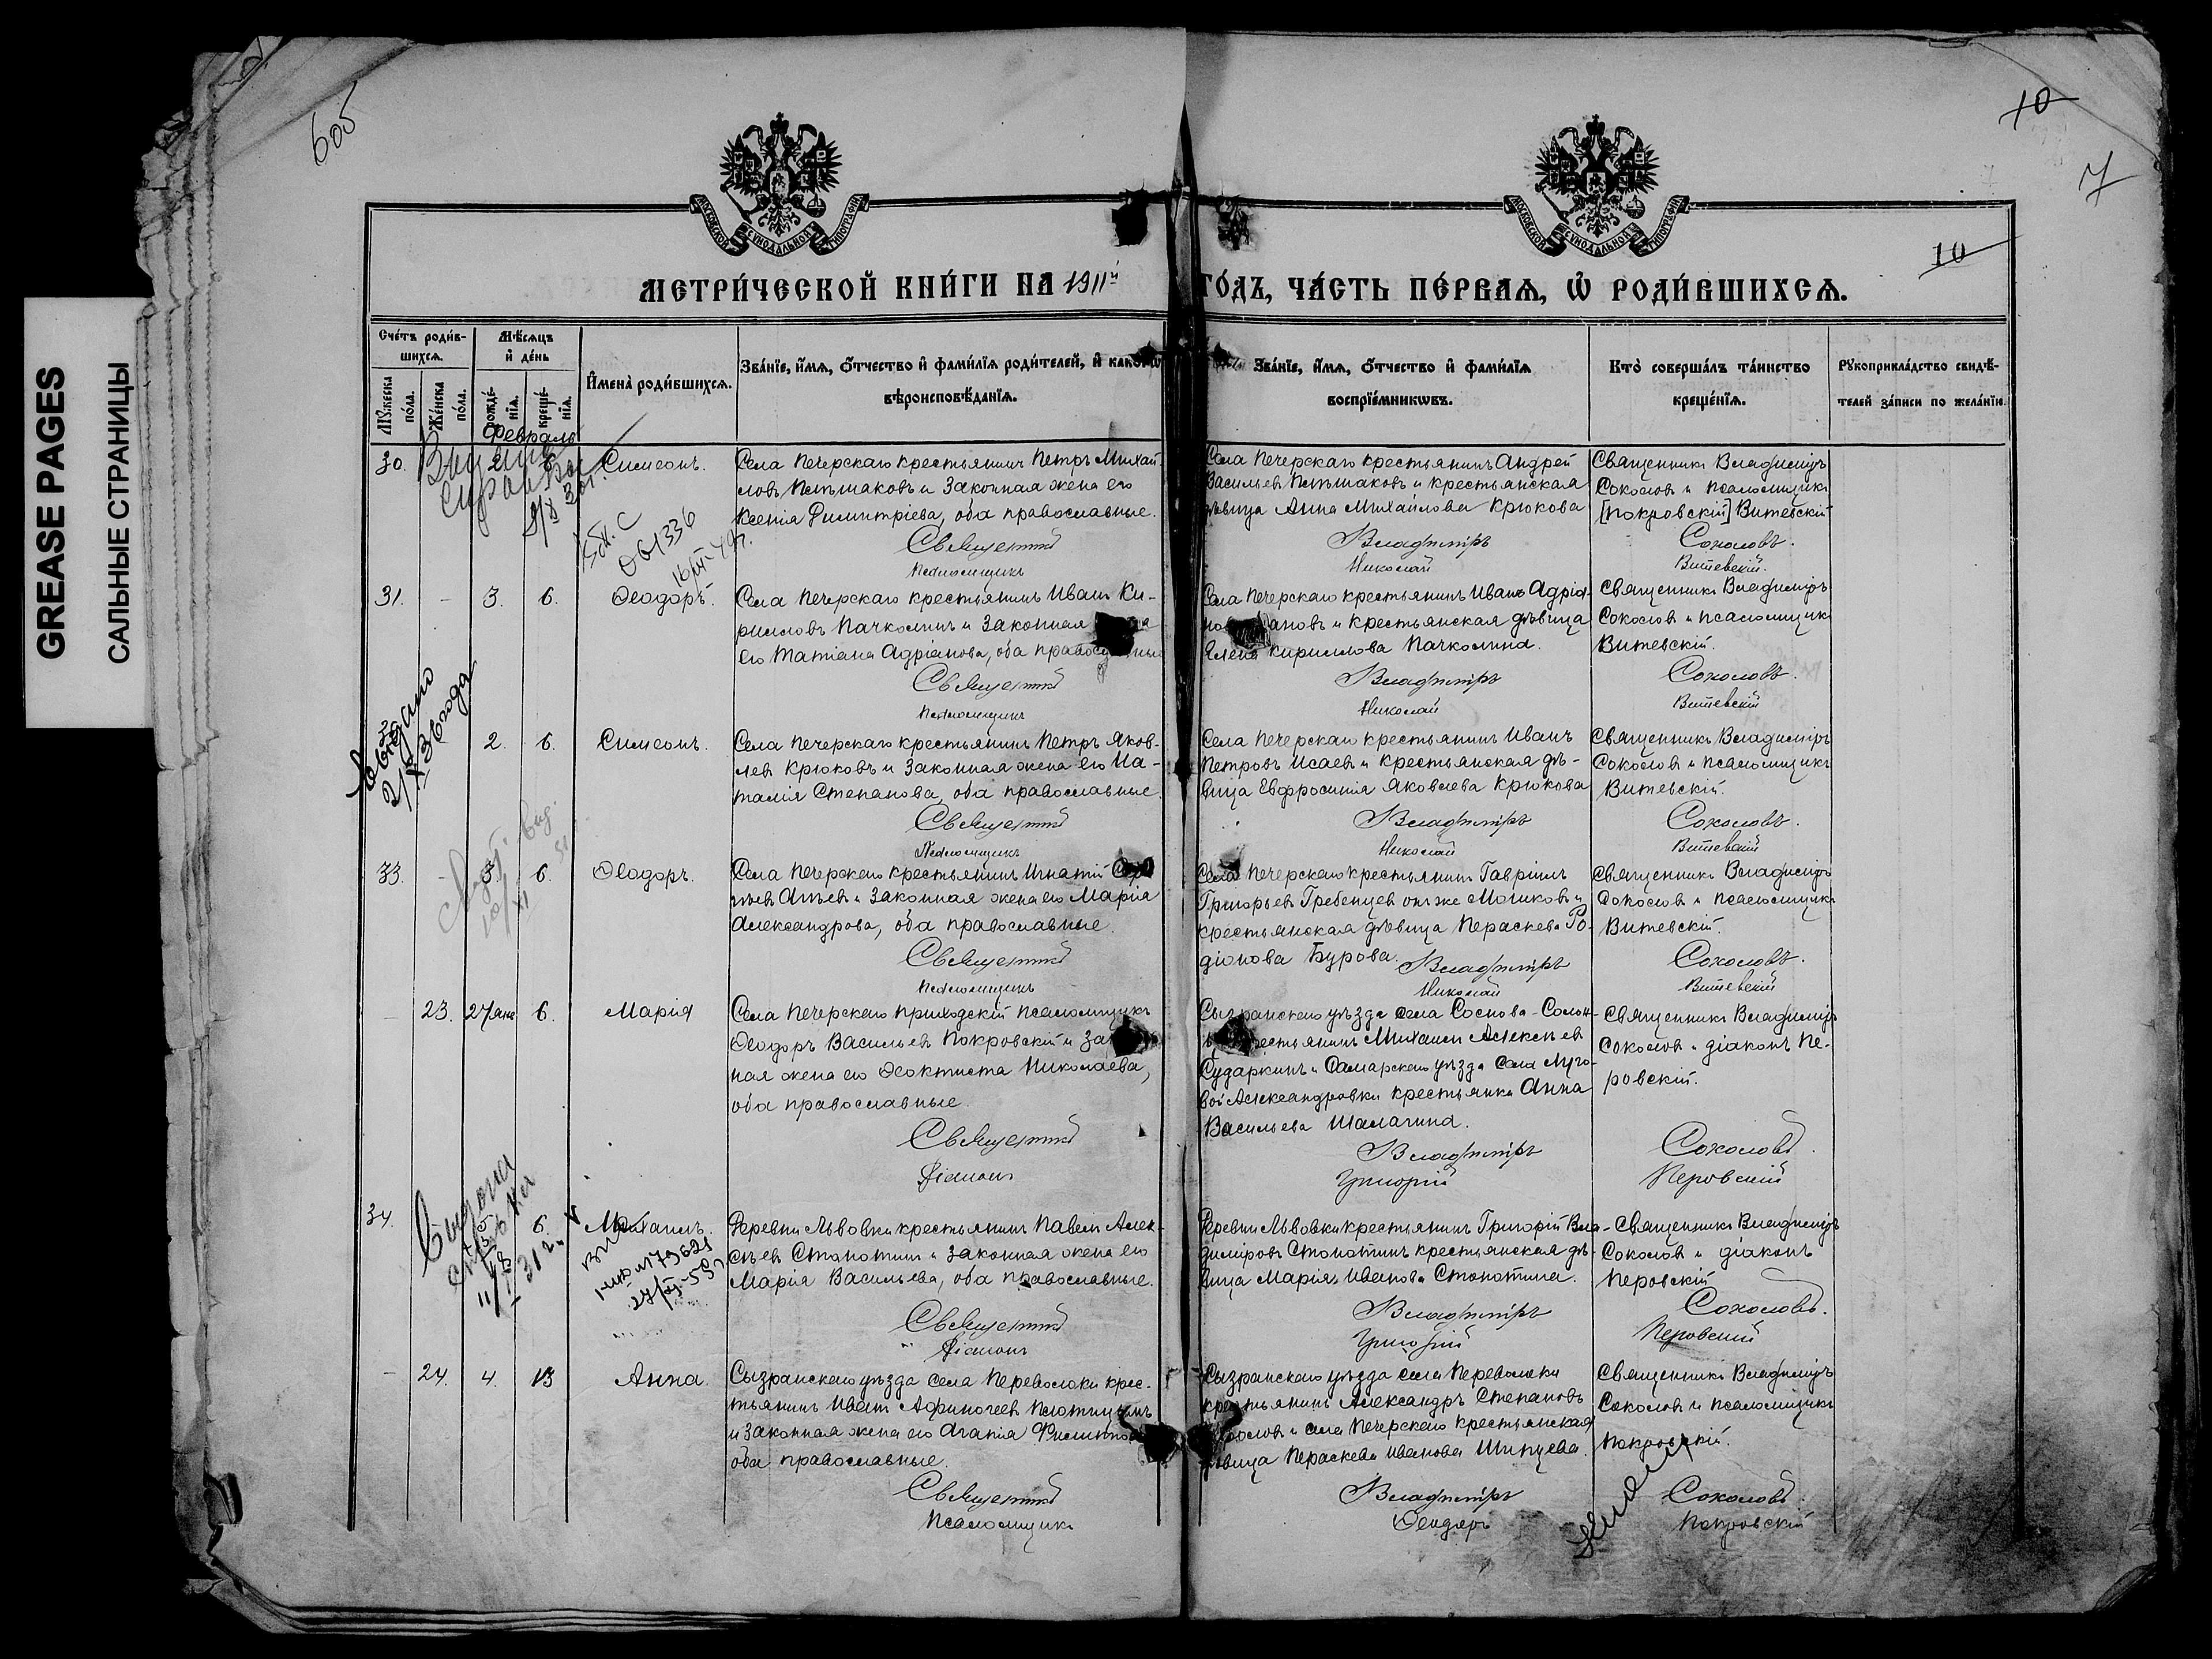 605
10
7
10
GREASE PAGES
САЛЬНЫЕ СТРАНИЦЫ
МОСКОВСКОЙ СѴНОДАЛЬНОЙ ТИПОГРАФІИ
МОСКОВСКОЙ СѴНОДАЛЬНОЙ ТИПОГРАФІИ
МЕТРИ́ЧЕСКОЙ КНИ́ГИ НА 1911й ГО́ДЪ, ЧА́СТЬ ПЕ́РВАѦ, Ѡ҆ РОДИ́ВШИХСѦ.
Сче́тъ роди́в-
шихсѧ.
Мꙋжеска по́ла.
Же́нска по́ла.
Мѣ́сѧцъ
и҆ де́нь
рожде́-
нїѧ.
креще́-
нїѧ.
И҆мена̀ роди́вшихсѧ.
Зва́нїе, и҆́мѧ, ѻ҆́тчество и҆ фами́лїѧ роди́телей, и҆ како́гѡ
вѣроисповѣ́данїѧ.
Зва́нїе, и҆́мѧ, ѻ҆́тчество и҆ фами́лїѧ
воспрїе́мникѡвъ.
Кто̀ соверша́лъ та́инство
креще́нїѧ.
Рꙋкоприкла́дство свидѣ́-
телей за́писи по жела́нїю.
Февраль
30. 2. 6. Симеонъ.
Села Печерскаго крестьянинъ Петръ Михай-
ловъ Пѣшаковъ и законная жена его
Ксенія Димитріева, оба православные.
Священникъ
Псаломщикъ
Села Печерскаго крестьянинъ Андрей
Васильевъ Пѣшаковъ и крестьянская
дѣвица Анна Михайлова Крюкова
Владиміръ
Николай
Священникъ Владиміръ
Соколовъ и псаломщикъ
[Покровскій] Витевскій
Соколовъ.
Витевскій.
061336
31. - 3. 6. Ѳеодоръ.
Села Печерскаго крестьянинъ Иванъ Ки-
рилловъ Пачколинъ и законная
его Татіана Адріанова, оба
Священникъ
Псаломщикъ
Села Печерскаго крестьянинъ Иванъ Адріа-
и крестьянская дѣвица
Елена Кириллова Пачколина.
Владиміръ
Николай
Священникъ Владиміръ
Соколовъ и псаломщикъ
Витевскій.
Соколовъ.
Витевскій
2. 6. Симеонъ.
Села Печерскаго крестьянинъ Петръ Яков-
левъ Крюковъ и законная жена его На-
талія Степанова, оба православные.
Священникъ
Псаломщикъ
Села Печерскаго крестьянинъ Иванъ
Петровъ Исаевъ и крестьянская дѣ-
вица Евфросинія Яковлева Крюкова
Владиміръ
Николай
Священникъ Владиміръ
Соколовъ и псаломщикъ
Витевскій.
Соколовъ.
Витевскій
33. - 3. 6. Ѳеодоръ.
Села Печерскаго крестьянинъ Игнатій
и законная жена его Марія
Александрова, оба православные.
Священникъ
Псаломщикъ
Села Печерскаго крестьянинъ Гавріилъ
Григорьевъ Гребенцевъ онъ же и
крестьянская дѣвица Параскева Ро-
діонова Бурова.
Владиміръ
Николай
Священникъ Владиміръ
Соколовъ и псаломщикъ
Витевскій.
Соколовъ.
Витевскій
- 23. 27 янв 6. Марія
Села Печерскаго приходскій псаломщикъ
Ѳеодоръ Васильевъ Покровскій и
ная жена его Ѳеоктиста Николаева,
оба православные.
Священникъ
Діаконъ
Сызранскаго уѣзда села Соснова-Солон-
Михаилъ Алексѣевъ
Сударкинъ и Самарскаго уѣзда села Луго-
вой Александровки крестьянка Анна
Васильева Шалагина.
Владиміръ
Григорій
Священникъ Владиміръ
Соколовъ и діаконъ Пе-
ровскій.
Соколовъ.
Перовскій
34. 5 6. Михаилъ.
Деревни Львовки крестьянинъ Павелъ Алек-
сѣевъ Столотинъ и законная жена его
Марія Васильева, оба православные.
Священникъ
Діаконъ
Деревни Львовки крестьянинъ Григорій Вла-
диміровъ Столотинъ крестьянская дѣ-
вица Марія Иванова Столотина.
Владиміръ
Григорій
Священникъ Владиміръ
Соколовъ и діаконъ
Перовскій
Соколовъ.
Перовскій
- 24. 4. 13 Анна.
Сызранскаго уѣзда села Переволоки крес-
тьянинъ Иванъ Афиногеевъ
и законная жена его Агапія
оба православные.
Священникъ
Псаломщикъ
Сызранскаго уѣзда села Переволоки
крестьянинъ Александръ Степановъ
и села Печерскаго крестьянская
дѣвица Параскева Иванова Шипцева.
Владиміръ
Ѳеодоръ
Священникъ Владиміръ
Соколовъ и псаломщикъ
Покровскій.
Соколовъ.
Покровскій